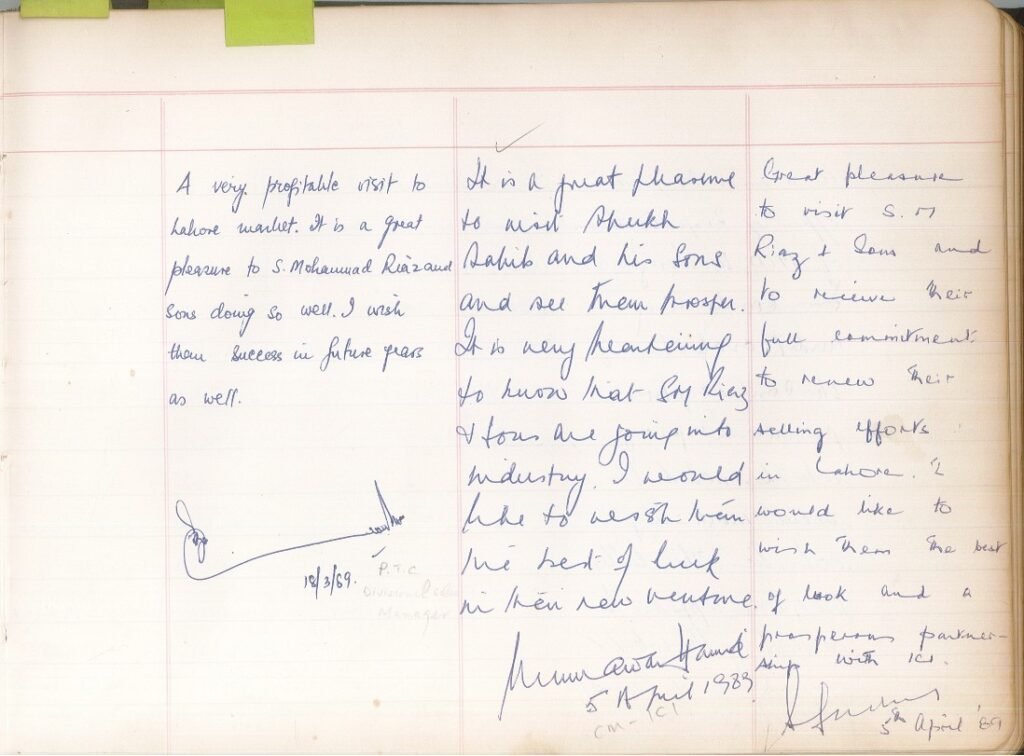 A very profitable visit to
Lahore market. It is a great
pleasure to S. Mohammad Riaz and
Sons doing so well. I wish
them success in future years
as well.
18/3/89.
P.T.C
Divisional Sales
Manager
It is a great pleasure
to visit Sheikh
Sahib and his Sons
and see them prosper.
It is very heartening
to know that SM Riaz
& Sons are going into
industry. I would
like to wish them
the best of luck
in their new venture.
Munawar Hamid
5 April 1989
CM - ICI
Great pleasure
to visit S. M
Riaz & Sons and
to receive their
full commitment
to renew their
selling efforts
in Lahore. I
would like to
wish them the best
of look and a
prosperous partner-
ship with ICI.
5th April '89